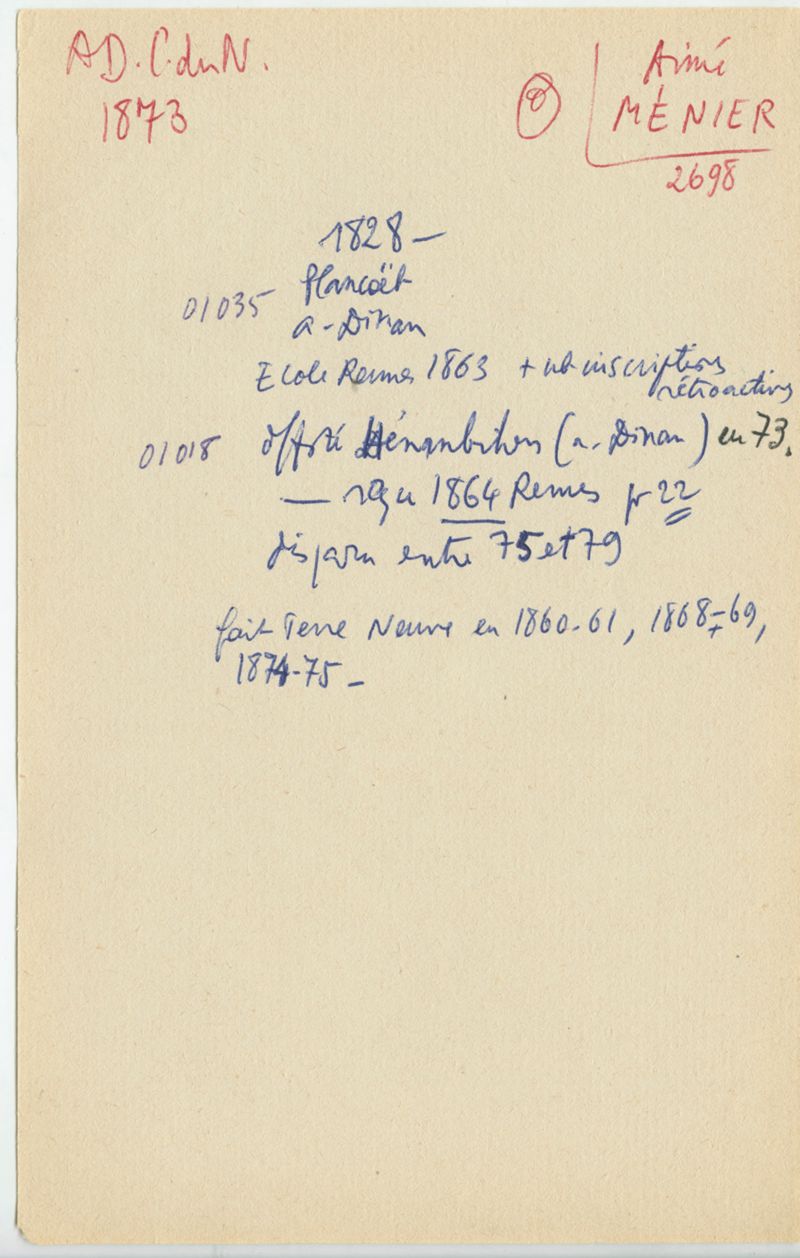 AD. C. du N.
1873
Aimé
MÉNIER
2698
1828 –
01035 Plancoët
a - Dinan
Ecole Rennes 1863 + inscriptions
rétroactives
01018 Hénanbihen (a. Dinan) en 73.
— reçu 1864 Rennes pr 22
disparu entre 75 et 79
fait Terre Neuve en 1860-61, 1868-69,
1874-75 –